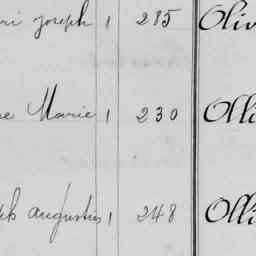 ri joseph 1 285 Oliv
e Marie 1 230 Olli
ph augustin 1 248 Olli